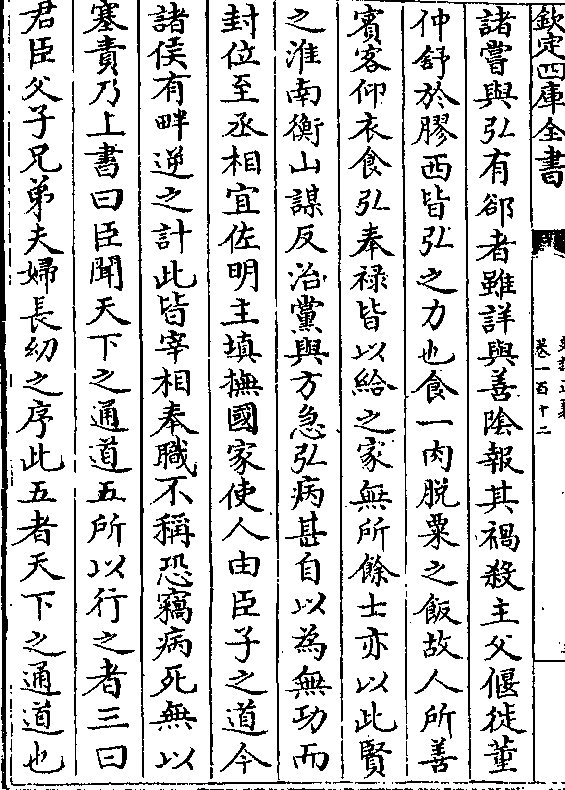 欽定四庫全書
卷一百十二
諸嘗與弘有郤者雖詳與善陰報其禍殺主父偃徙董
仲舒於膠西皆弘之力也食一肉脫粟之飯故人所善
賓客仰衣食弘奉禄皆以給之家無所餘士亦以此賢
之淮南衡山謀反治黨與方急弘病甚自以為無功而
封位至丞相宜佐明主填撫國家使人由臣子之道今
諸侯有畔逆之計此皆宰相奉職不稱恐竊病死無以
塞責乃上書曰臣聞天下之通道五所以行之者三曰
君臣父子兄弟夫婦長幼之序此五者天下之通道也